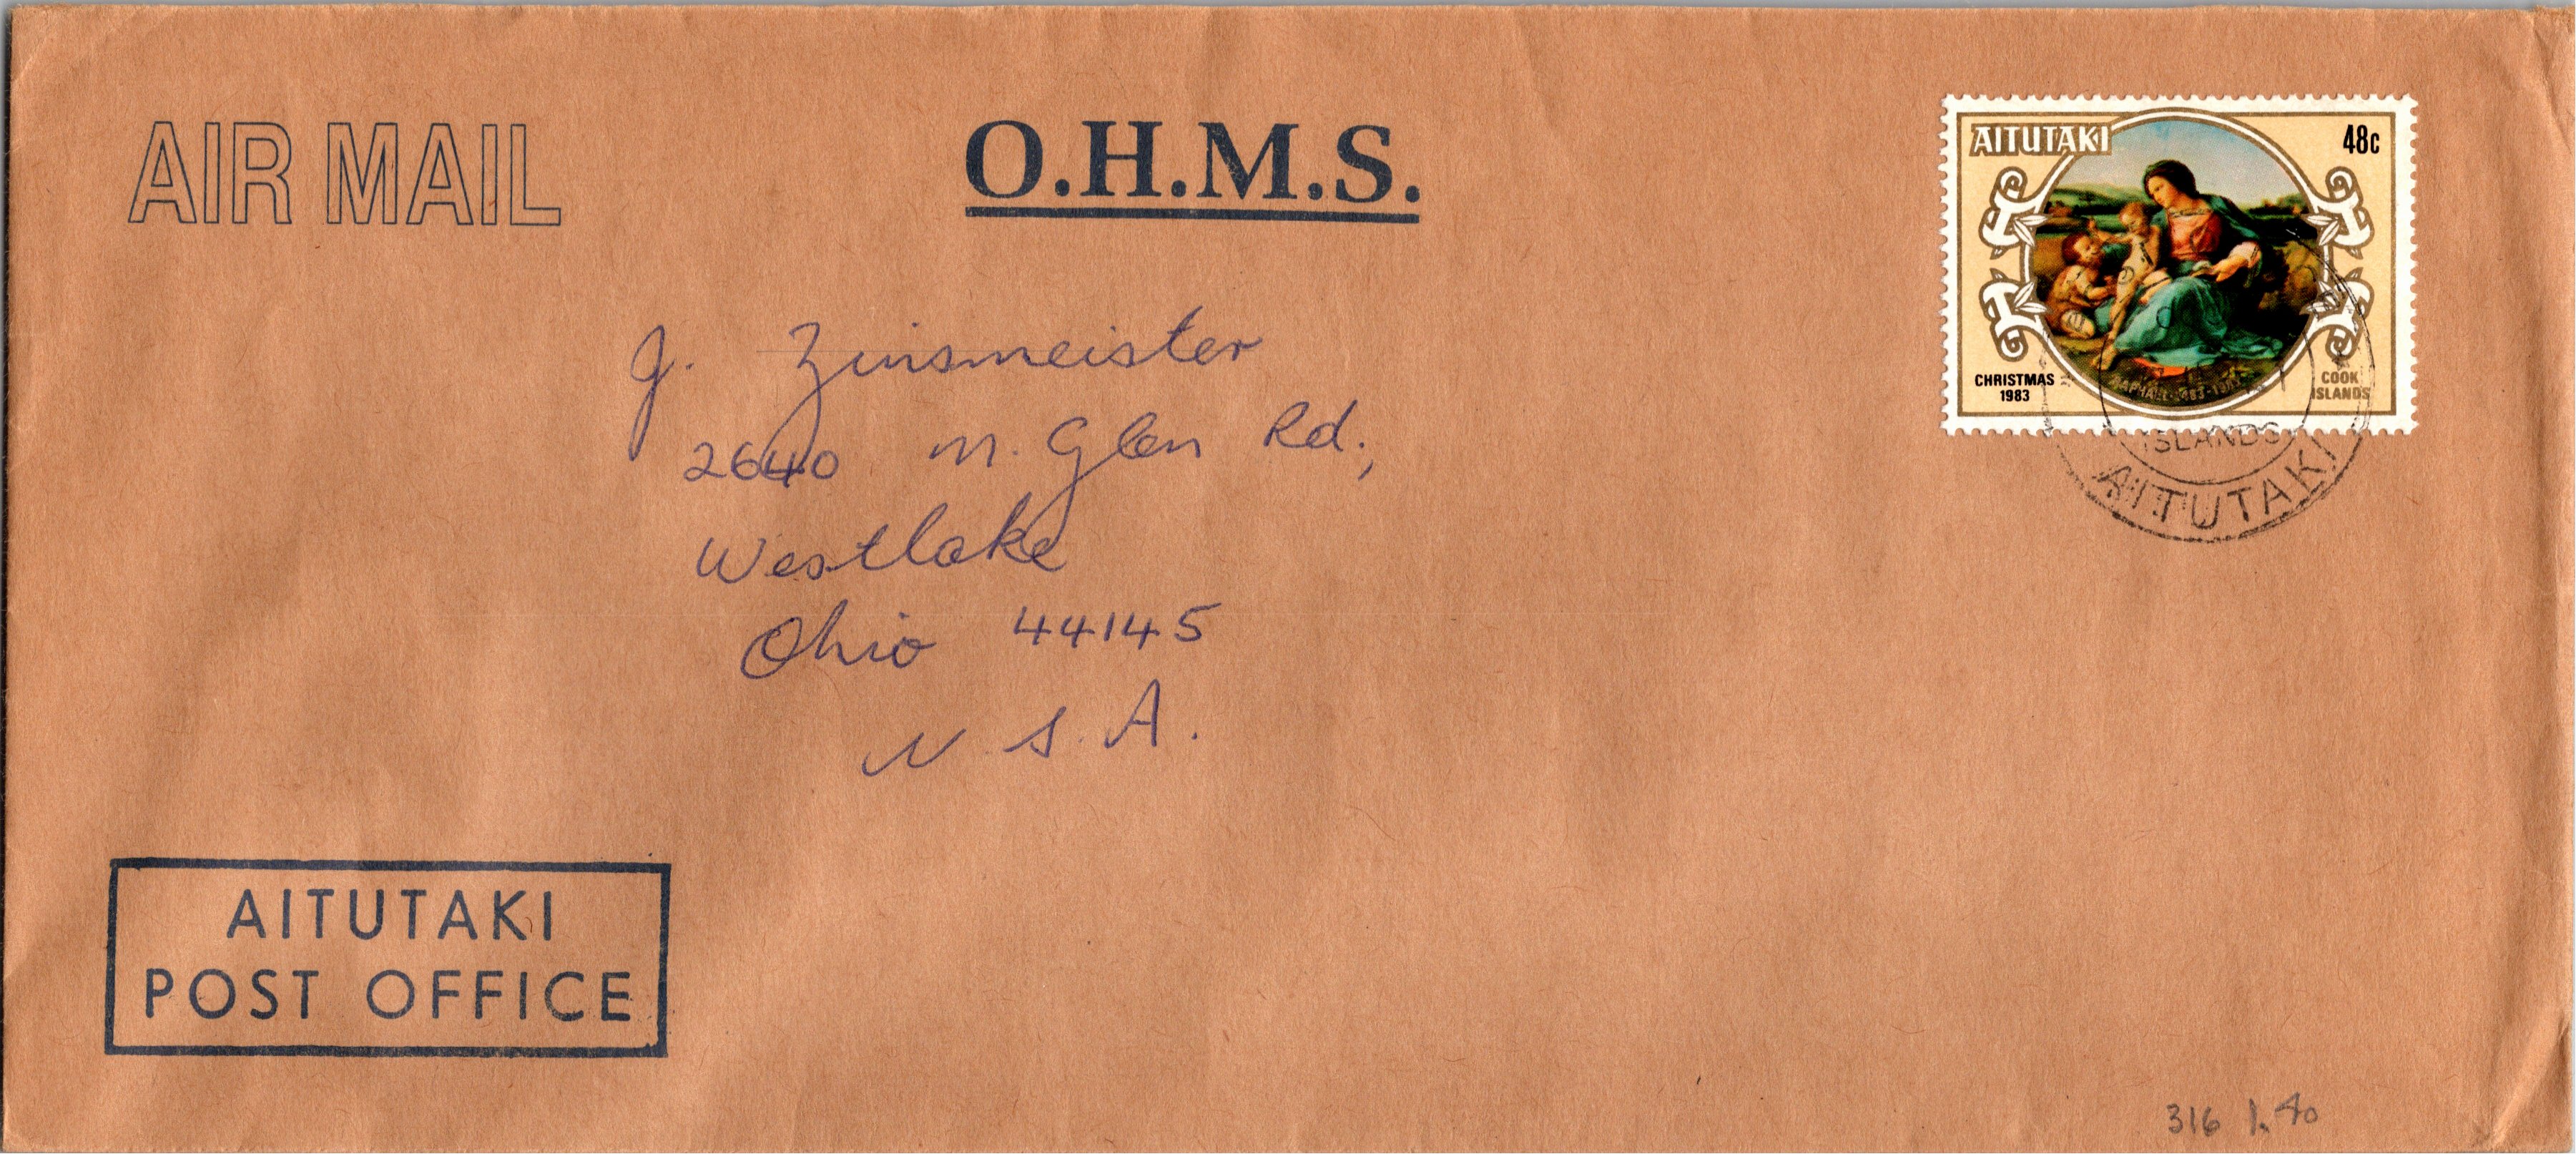 AIR MAIL
O.H.M.S.
AITUTAKI
48c
CHRISTMAS
1983
RAPHAEL 1483-1983
COOK
ISLANDS
ISLANDS
AITUTAKI
J. Zinsmeister
2640 M. Glen Rd.,
Westlake
Ohio 44145
U.S.A.
AITUTAKI
POST OFFICE
316 1.40